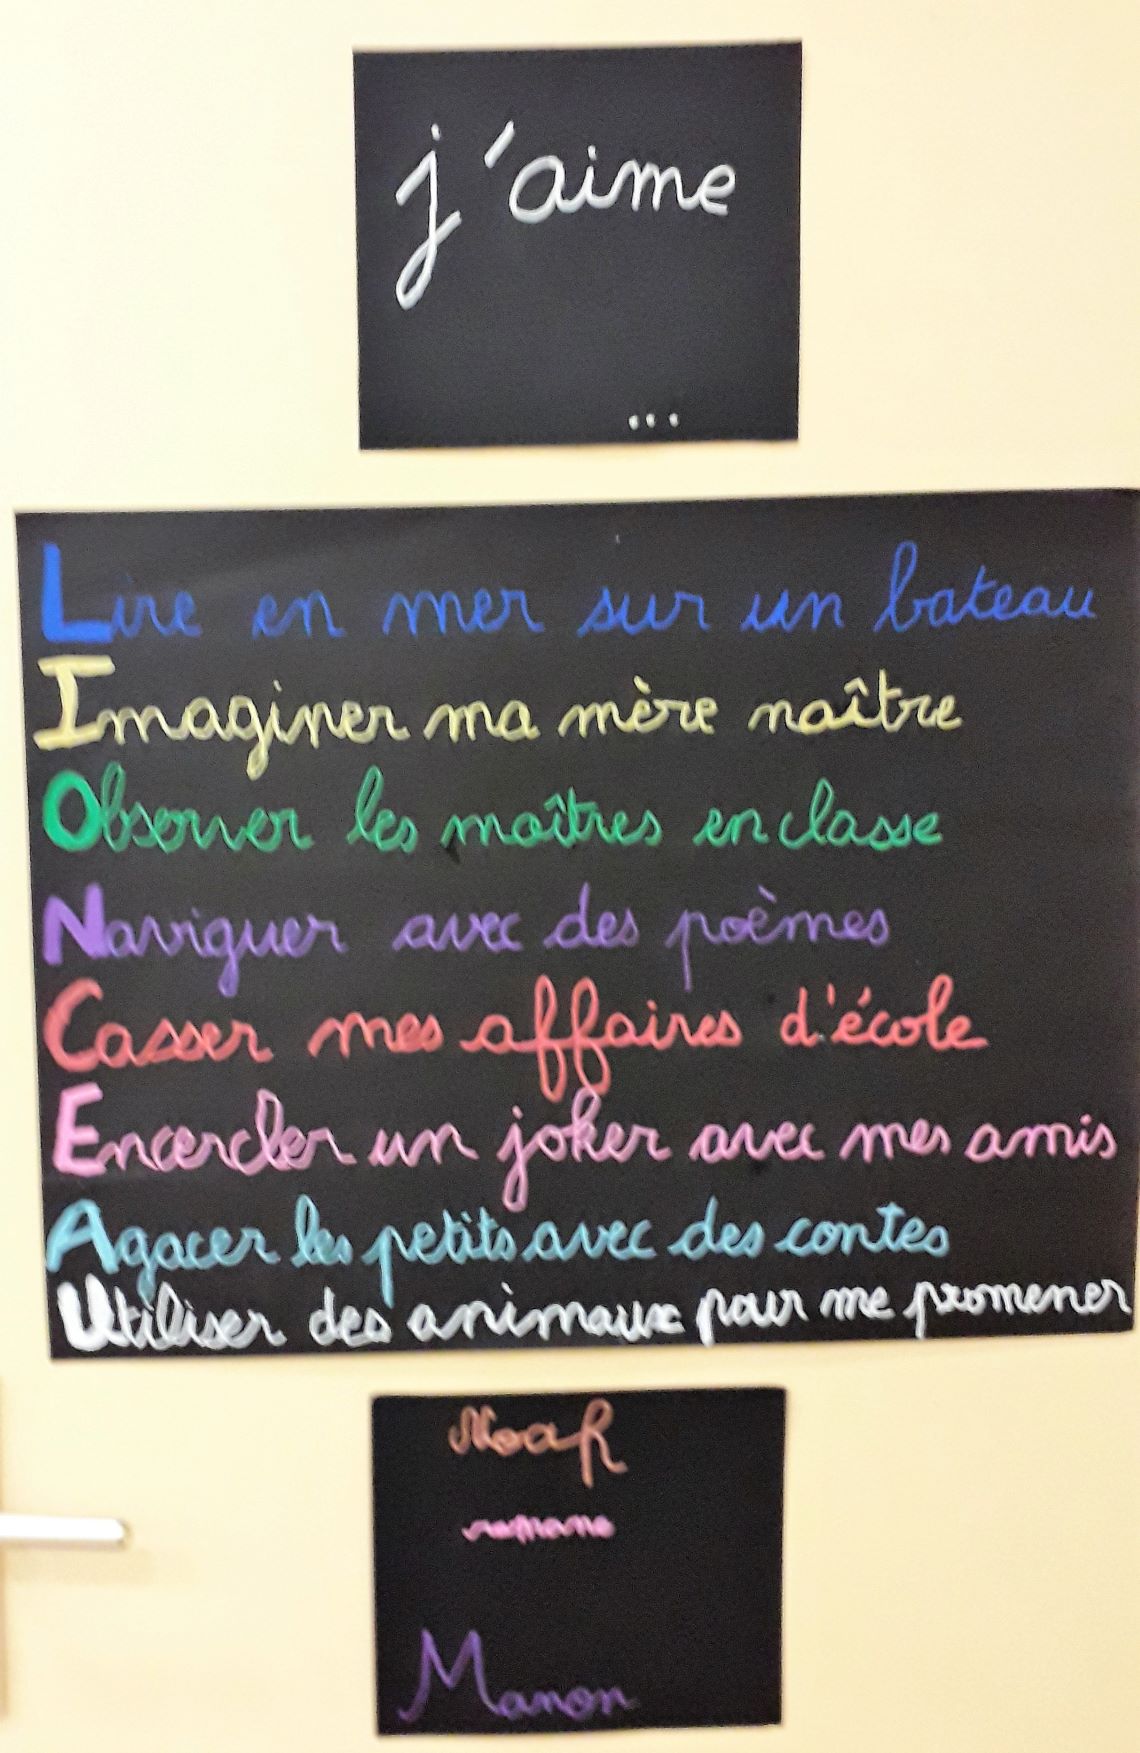 j'aime
...
Lire en mer sur un bateau
Imaginer ma mère naître
Observer les maîtres en classe
Naviguer avec des poèmes
Casser mes affaires d'école
Encercler un joker avec mes amis
Agacer les petits avec des contes
Utiliser des animaux pour me promener
Noah
romane
Manon